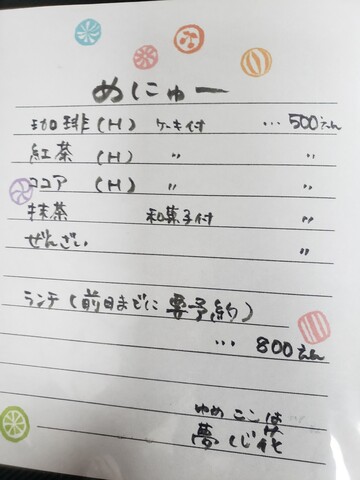 めにゅー
珈琲(H) ケーキ付 …500えん
紅茶 (H) 〃 〃
ココア (H) 〃 〃
抹茶 和菓子付 〃
ぜんざい 〃
ランチ(前日までに要予約)
…800えん
ゆめ ここは
夢心花